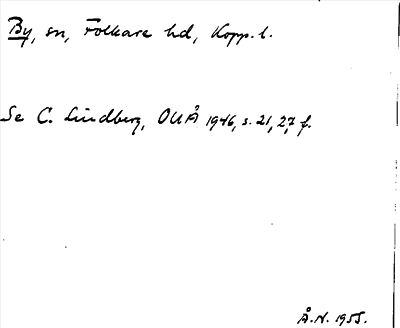 By, sn, Folkare hd, Kopp. l.
Se C. Lindberg, OUÅ 1946, s. 21, 27 f.
Å.N. 1955.